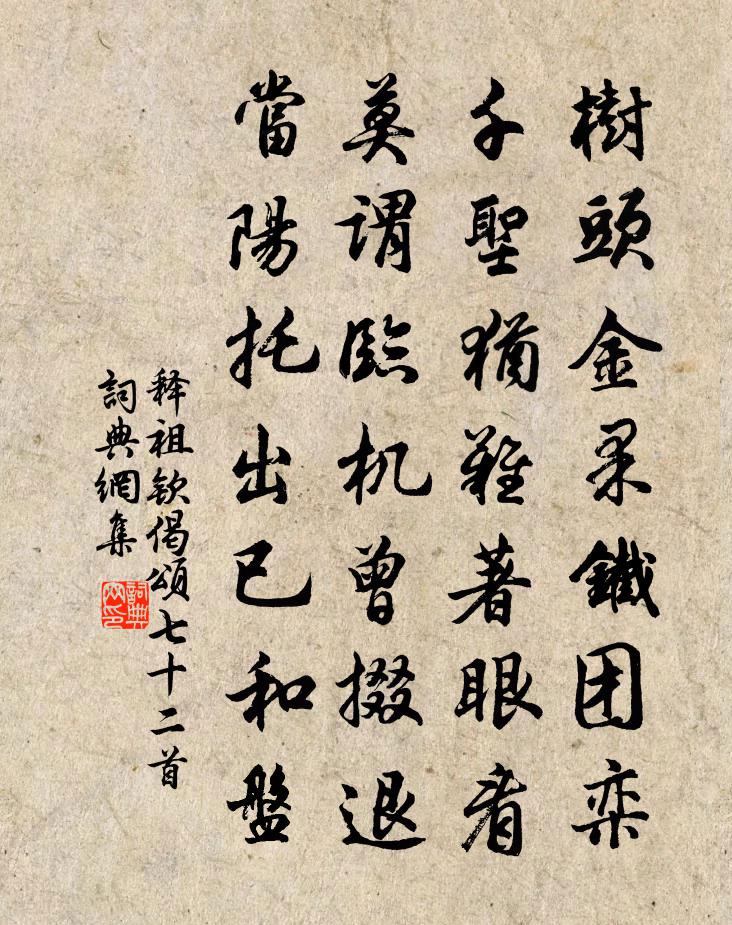 樹頭金果鐵团栾
千聖猶難著眼看
莫謂臨机曾掇退
當陽托出已和盤
释祖钦偈頌七十二首
詞典網集
詞典网印